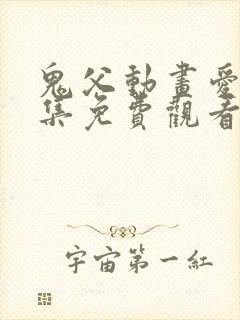 鬼父動畫愛
集免費觀看
宇宙第一紅